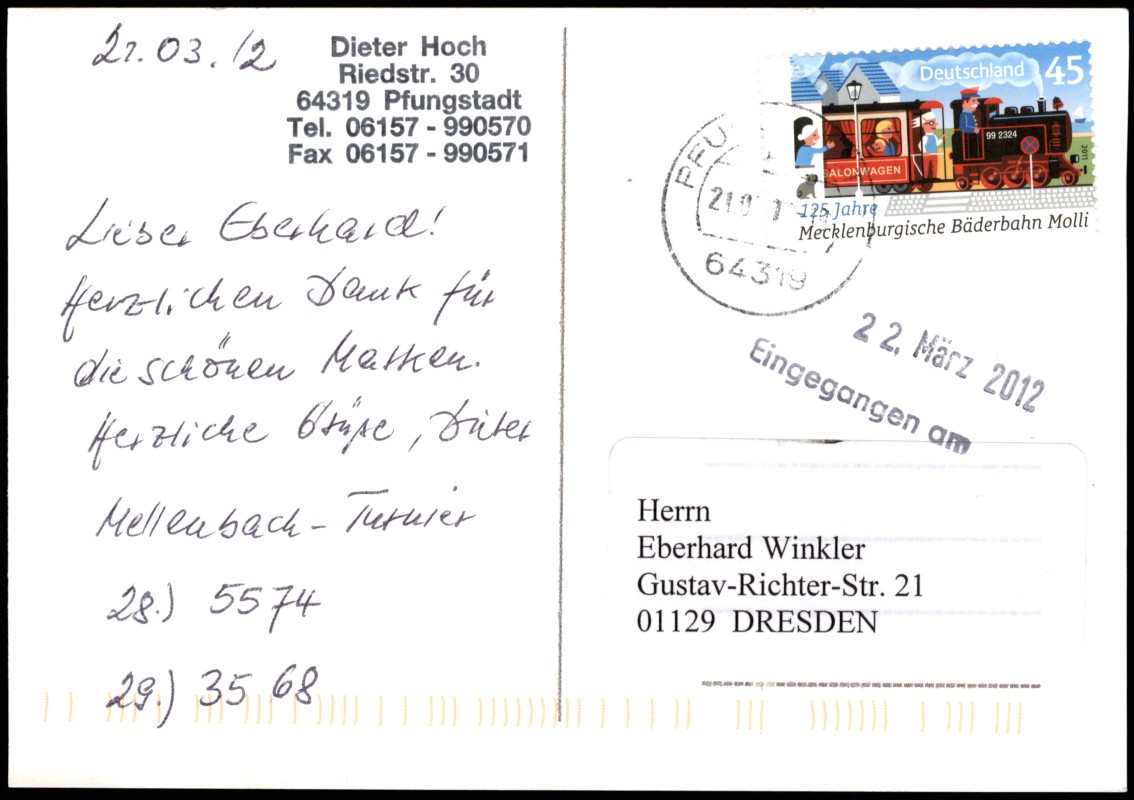 21.03.12
Dieter Hoch
Riedstr. 30
64319 Pfungstadt
Tel. 06157 - 990570
Fax 06157 - 990571
Lieber Eberhard!
Herzlichen Dank für
die schönen Marken.
Herzliche Grüße, Dieter
Mellenbach-Turnier
28.) 5574
29.) 3568
Deutschland 45
99 2324
SALONWAGEN
2011
125 Jahre
Mecklenburgische Bäderbahn Molli
PFU
21.0
64319
22. März 2012
Eingegangen am
Herrn
Eberhard Winkler
Gustav-Richter-Str. 21
01129 DRESDEN